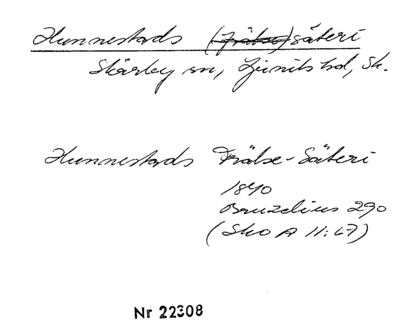 Hunnestads (frälse)säteri
Skårby sn, Ljunits hd, Sk.
Hunnestads Frälse-Säteri
1840
Bruzelius 290
(Sko A 11:67)
Nr 22308